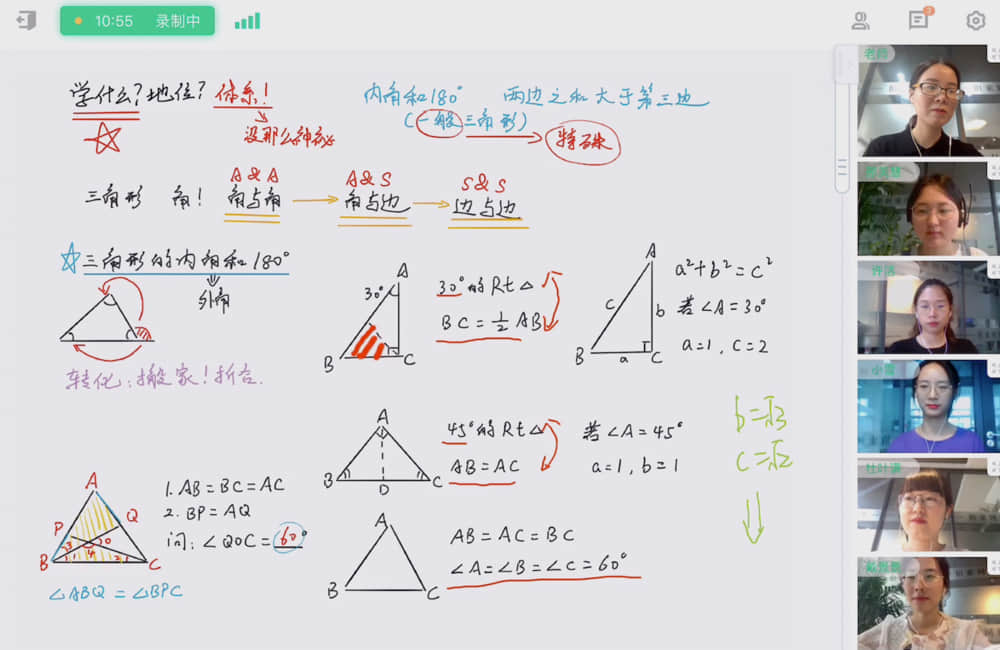 10:55 录制中
3
学什么？地位？体系！
没那么神秘
内角和180° 两边之和大于第三边
(一般三角形) 特殊
三角形 角！
A&A A&S S&S
角与角 角与边 边与边
☆三角形的内角和180°
外角
转化：搬家！折合.
A
30°
B C
30°的Rt△
BC=½AB
A
c b
B a C
a²+b²=c²
若∠A=30°
a=1, c=2
A
B D C
45°的Rt△
AB=AC
若∠A=45°
a=1, b=1
b=√3
c=√2
A
P Q
O
B C
1. AB=BC=AC
2. BP=AQ
问：∠QOC=60°
△ABQ=△BPC
A
B C
AB=AC=BC
∠A=∠B=∠C=60°
老师
许洛
小雪